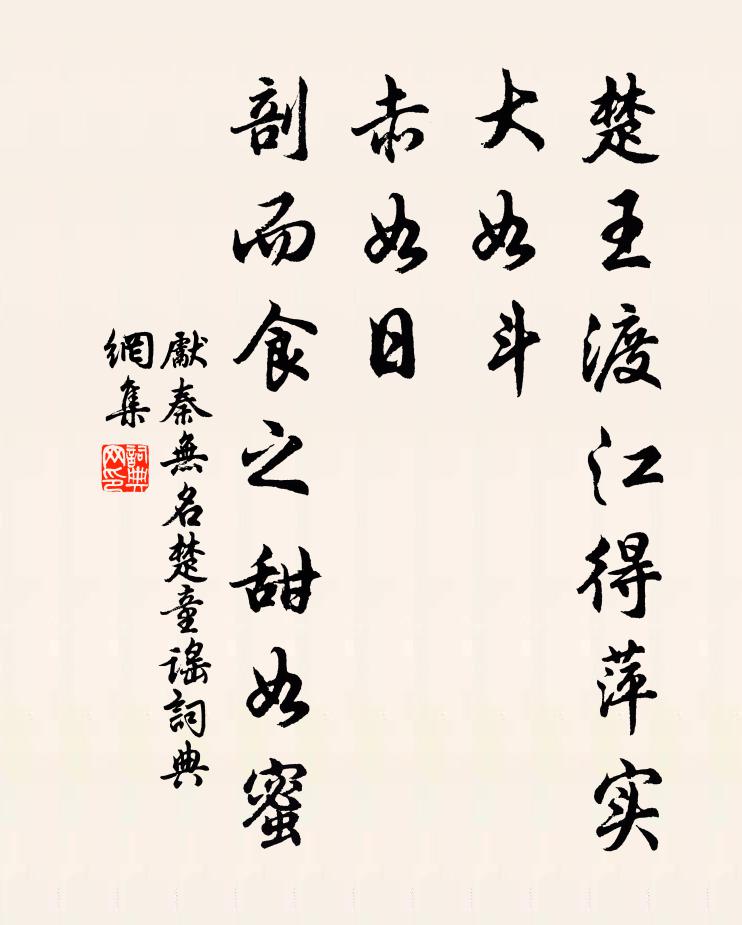 楚王渡江得萍实
大如斗
赤如日
剖而食之甜如蜜
獻秦無名楚童谣詞典
網集
詞典
网印